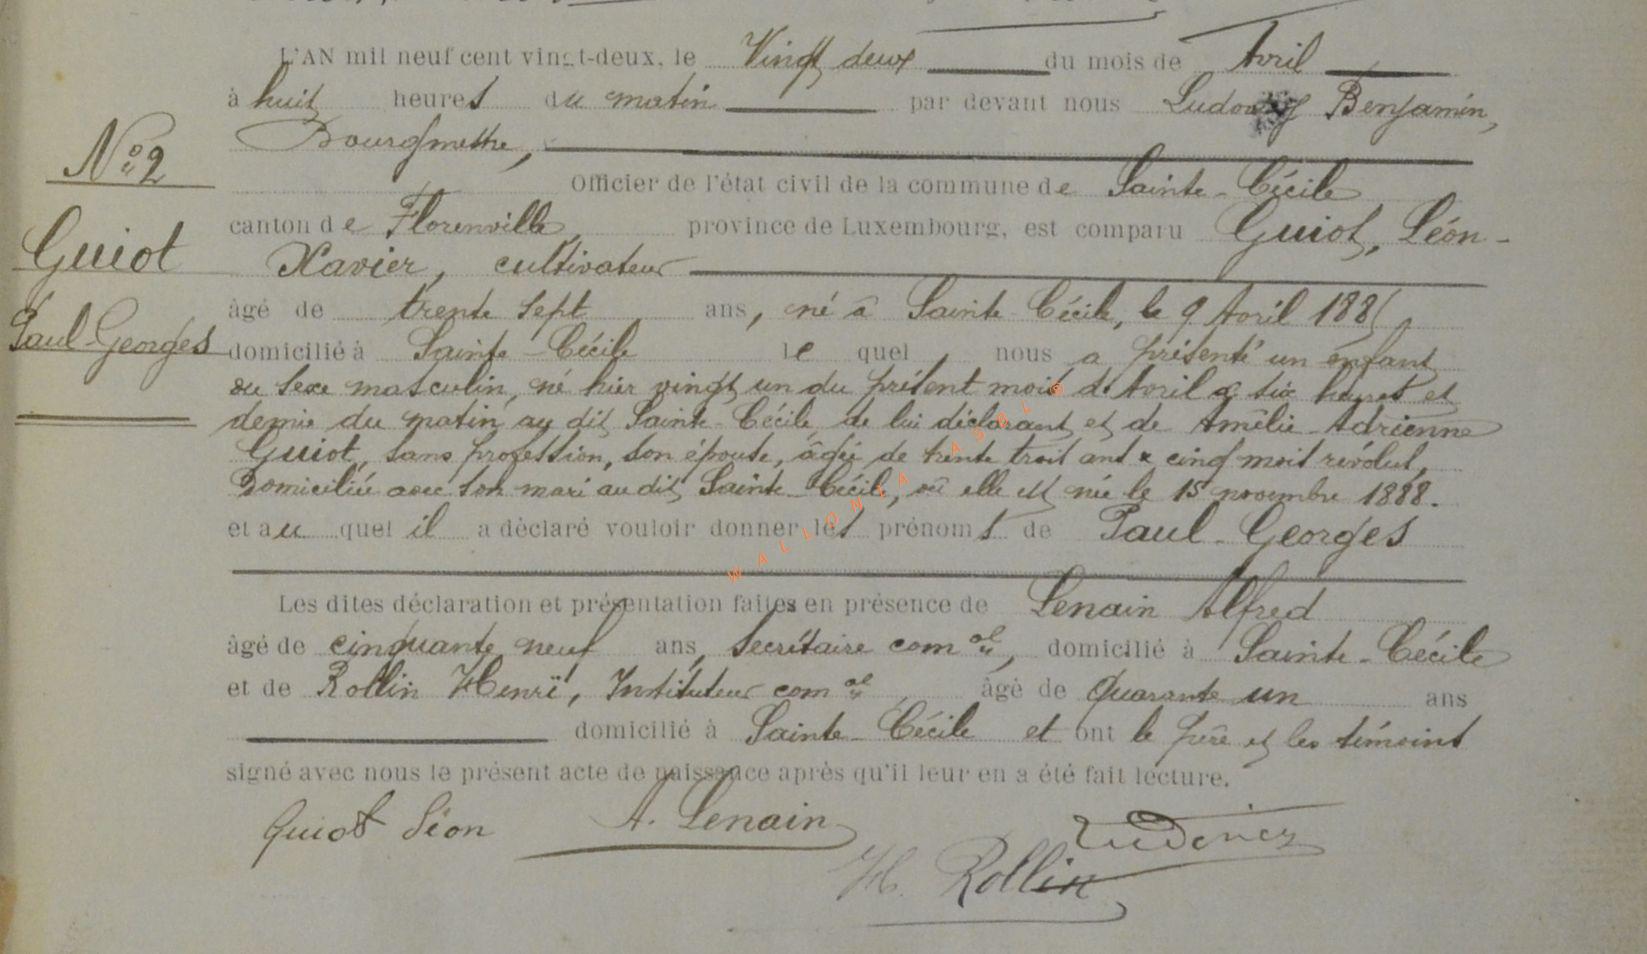 L'AN mil neuf cent vingt-deux, le Vingt deux du mois de Avril
à huit heures du matin par devant nous Ludovicy Benjamin,
Bourgmestre,
N° 2
Officier de l'état civil de la commune de Sainte-Cécile
canton de Florenville province de Luxembourg, est comparu Guiot, Léon-
Guiot
Xavier, cultivateur
âgé de trente sept ans, né à Sainte Cécile, le 9 Avril 1885,
Paul-Georges
domicilié à Sainte-Cécile lequel, nous a présenté un enfant
du sexe masculin, né hier vingt un du présent mois d'Avril à six heures et
demie du matin, au dit Sainte-Cécile, de lui déclarant et de Amélie-Adrienne
Guiot, sans profession, son épouse, âgée de trente trois ans & cinq mois révolus,
Domiciliée avec son mari au dit Sainte-Cécile, où elle est née le 15 novembre 1888.
et au quel il a déclaré vouloir donner les prénoms de Paul-Georges
WALLONIA ASBL ©
Les dites déclaration et présentation faites en présence de Lenain Alfred
âgé de cinquante neuf ans, Secrétaire com al, domicilié à Sainte-Cécile
et de Rollin Henri, Instituteur com al, âgé de Quarante un ans
domicilié à Sainte-Cécile et ont le père et les témoins
signé avec nous le présent acte de naissance après qu'il leur en a été fait lecture.
Guiot Léon A. Lenain
H. Rollin